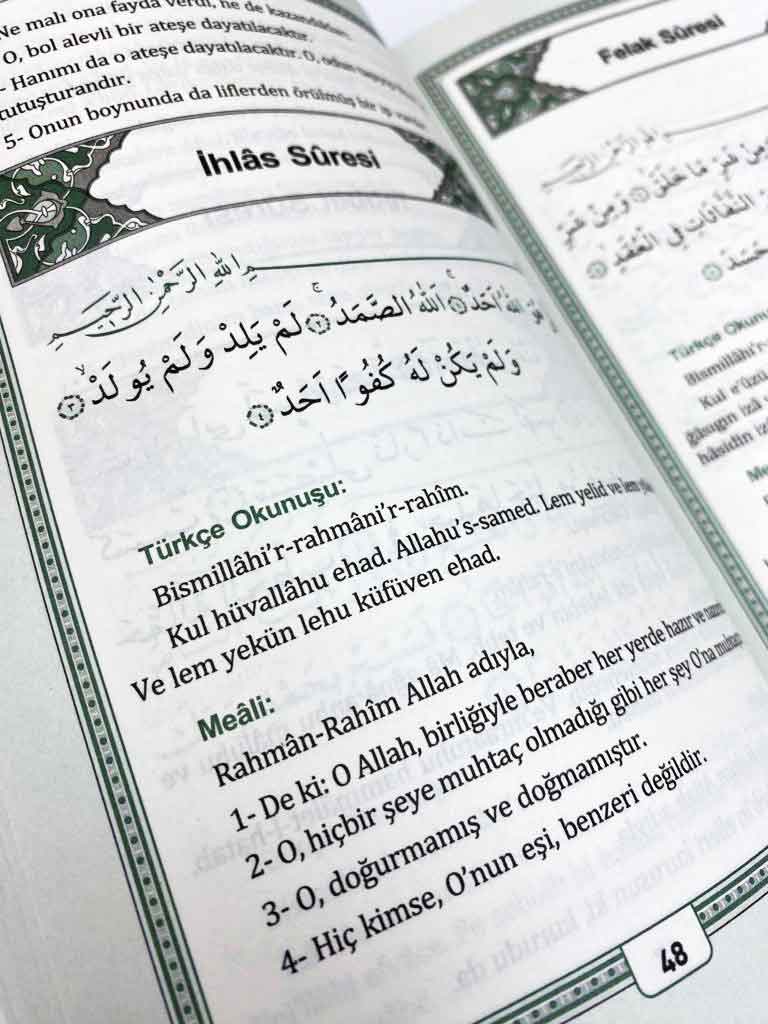 Ne malı ona fayda verdi, ne de kazandıkları.
O, bol alevli bir ateşe dayatılacaktır.
- Hanımı da o ateşe dayatılacaktır. O, odun
tutuşturandır.
5- Onun boynunda da liflerden örülmüş bir ip
İhlâs Sûresi
اللهِ الرَّحْمٰنِ الرَّحٖيمِ
هُوَ اللّٰهُ اَحَدٌۚ ﴿١﴾ اَللّٰهُ الصَّمَدُۚ ﴿٢﴾ لَمْ يَلِدْ وَلَمْ يُولَدْۙ ﴿٣﴾
وَلَمْ يَكُنْ لَهُ كُفُوًا اَحَدٌ ﴿٤﴾
Türkçe Okunuşu:
Bismillâhi’r-rahmâni’r-rahîm.
Kul hüvallâhu ehad. Allahu’s-samed. Lem yelid ve lem
Ve lem yekün lehu küfüven ehad.
Meâli:
Rahmân-Rahîm Allah adıyla,
1- De ki: O Allah, birliğiyle beraber her yerde hazır ve
2- O, hiçbir şeye muhtaç olmadığı gibi her şey O’na
3- O, doğurmamış ve doğmamıştır.
4- Hiç kimse, O’nun eşi, benzeri değildir.
48
Felak Sûresi
اللهِ الرَّحْمٰنِ
مِنْ شَرِّ مَا خَلَقَۙ ﴿٢﴾ وَمِنْ شَرِّ
النَّفَّاثَاتِ فِي الْعُقَدِۙ ﴿٤﴾
حَسَدَ ﴿٥﴾
Türkçe Okunuşu
Bismillâhi’r
Kul e’ûzü
ğâsıgın izâ
hâsidin iz